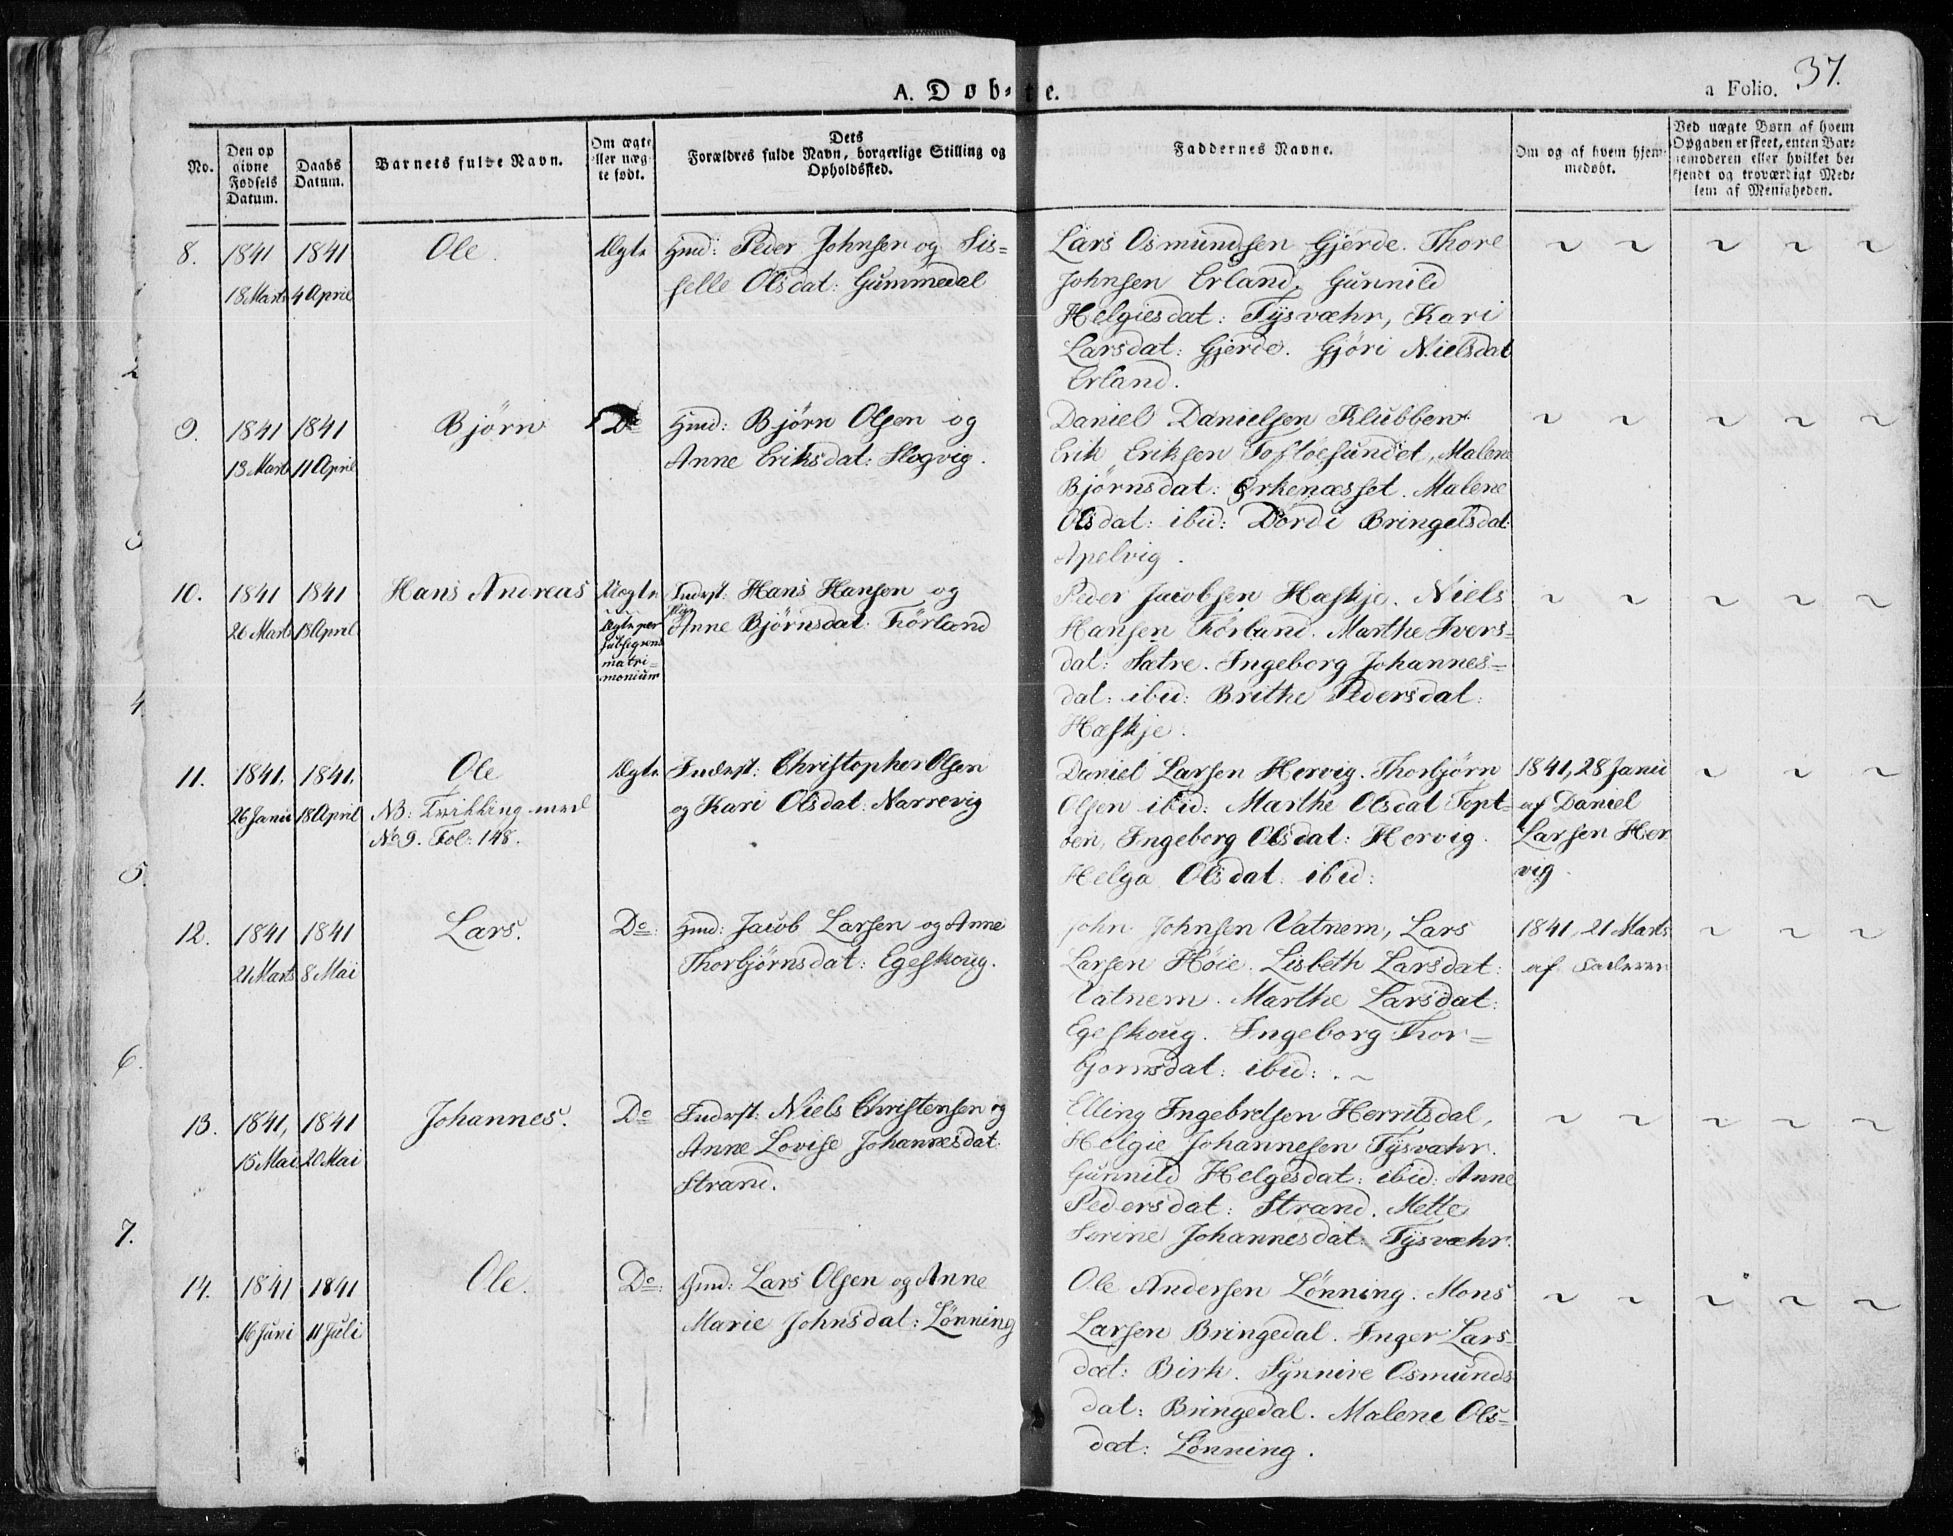 A. Døb-te.
a Folio. 37.
No.
Den op
givne
Fødsels
Datum.
Daabs
Datum.
Barnets fulde Navn.
Om ægte
eller uæg-
te født.
Dets
Forældres fulde Navn, borgerlige Stilling og
Opholdssted.
Faddernes Navne.
Om og af hvem hjem-
medøbt.
Ved uægte Børn af hvem
Opgaven er skeet, enten Bar-
nemoderen eller hvilket be-
kjendt og troværdigt Med-
lem af Menigheden.
8.
1841
18 Marts
1841
4 April
Ole.
Ægte
Gmd: Peder Johnsen og Sis-
selle Olsdat: Gummedal
Lars Osmundsen Gjerde. Thore
Johnsen Erland. Gunnild
Helgiesdat: Tysvæhr, Kari
Larsdat: Gjerde. Gjøri Nielsdat
Erland.
9.
1841
13 Marts
1841
11 April
Bjørn
Do
Gmd: Bjørn Olsen og
Anne Eriksdat: Slogvig.
Daniel Danielsen Klubben.
Erik Eriksen Toftøesundet, Malene
Bjørnsdat: Ørkenæsset. Malene
Olsdat: ibid: Dordi Bringelsdat:
Apelvig.
10.
1841
26 Marts
1841
18 April
Hans Andreas
Uægte
Ægte per
subseqvens
matri-
monium
Inderst: Hans Hansen og
Pige
Anne Bjørnsdat: Førland
Peder Jacobsen Hæskje. Niels
Hansen Førland. Marthe Ivers-
dat: Sætre. Ingeborg Johannes-
dat: ibid: Brithe Pedersdat:
Hæskje.
11.
1841.
26 Janu
1841.
18 April
Ole
NB: Tvilling med
No 9. Fol: 148.
Ægte
Inderst: Christopher Olsen
og Kari Olsdat: Narrevig
Daniel Larsen Hervig. Thorbjørn
Olsen ibid: Marthe Olsdat Topt-
øen, Ingeborg Olsdat: Hervig.
Helga Olsdat: ibid:
1841, 28 Janu
af Daniel
Larsen Her
vig.
12.
1841
21 Marts
1841
8 Mai
Lars.
Do:
Gmd: Jacob Larsen og Anne
Thorbjørnsdat: Egeskoug.
John Johnsen Vatnem, Lars
Larsen Høie. Lisbeth Larsdat:
Vatnem. Marthe Larsdat:
Egeskoug. Ingeborg Thor-
bjornsdat: ibid:
1841, 21 Marts
af Faderen
13.
1841,
15 Mai
1841
20 Mai
Johannes.
Do
Inderst: Niels Christensen og
Anne Lovise Johannesdat:
Strand.
Elling Ingebretsen Herritsdal,
Helgie Johannesen Tysvæhr.
Gunnild Helgesdat: ibid: Anne
Pedersdat: Strand. Mette
Serine Johannesdat: Tysvæhr.
14.
1841
16 Juni
1841
11 Juli
Ole.
Do:
Gmd: Lars Olsen og Anne
Marie Johnsdat: Lønning
Ole Andersen Lønning. Mons
Larsen Bringedal. Inger Lars-
dat: Birk. Synnive Osmunds-
dat: Bringedal. Malene Ols-
dat: Lønning.
2
3
4.
5.
6.
7.